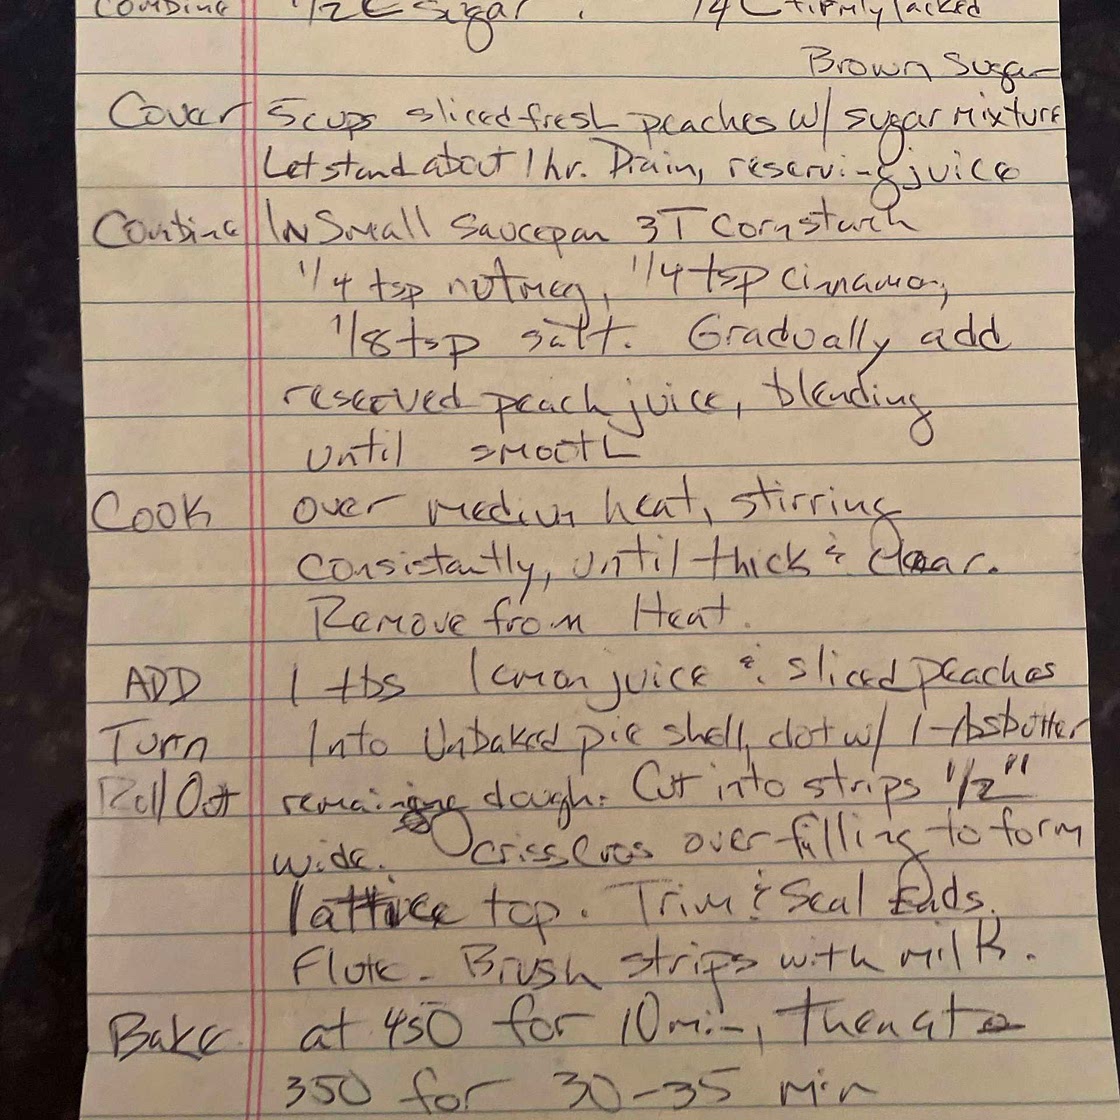 Combine 1/2 C Sugar. 1/4 C firmly packed
Brown Sugar
Cover 5 cups sliced fresh peaches w/ sugar mixture
Let stand about 1 hr. Drain, reserving juice
Combine In Small Saucepan 3T Cornstarch
1/4 tsp nutmeg, 1/4 tsp cinnamon,
1/8 tsp salt. Gradually add
reserved peach juice, blending
until smooth
Cook over medium heat, stirring
consistantly, until thick & clear.
Remove from Heat.
ADD 1 tbs lemon juice & sliced peaches
Turn Into Unbaked pie shell, dot w/ 1 tbs butter
Roll Out remaining dough. Cut into strips 1/2"
wide. Criss Cros over filling to form
lattice top. Trim & Seal Ends.
Flute. Brush strips with milk.
Bake at 450 for 10 min, then at
350 for 30-35 min